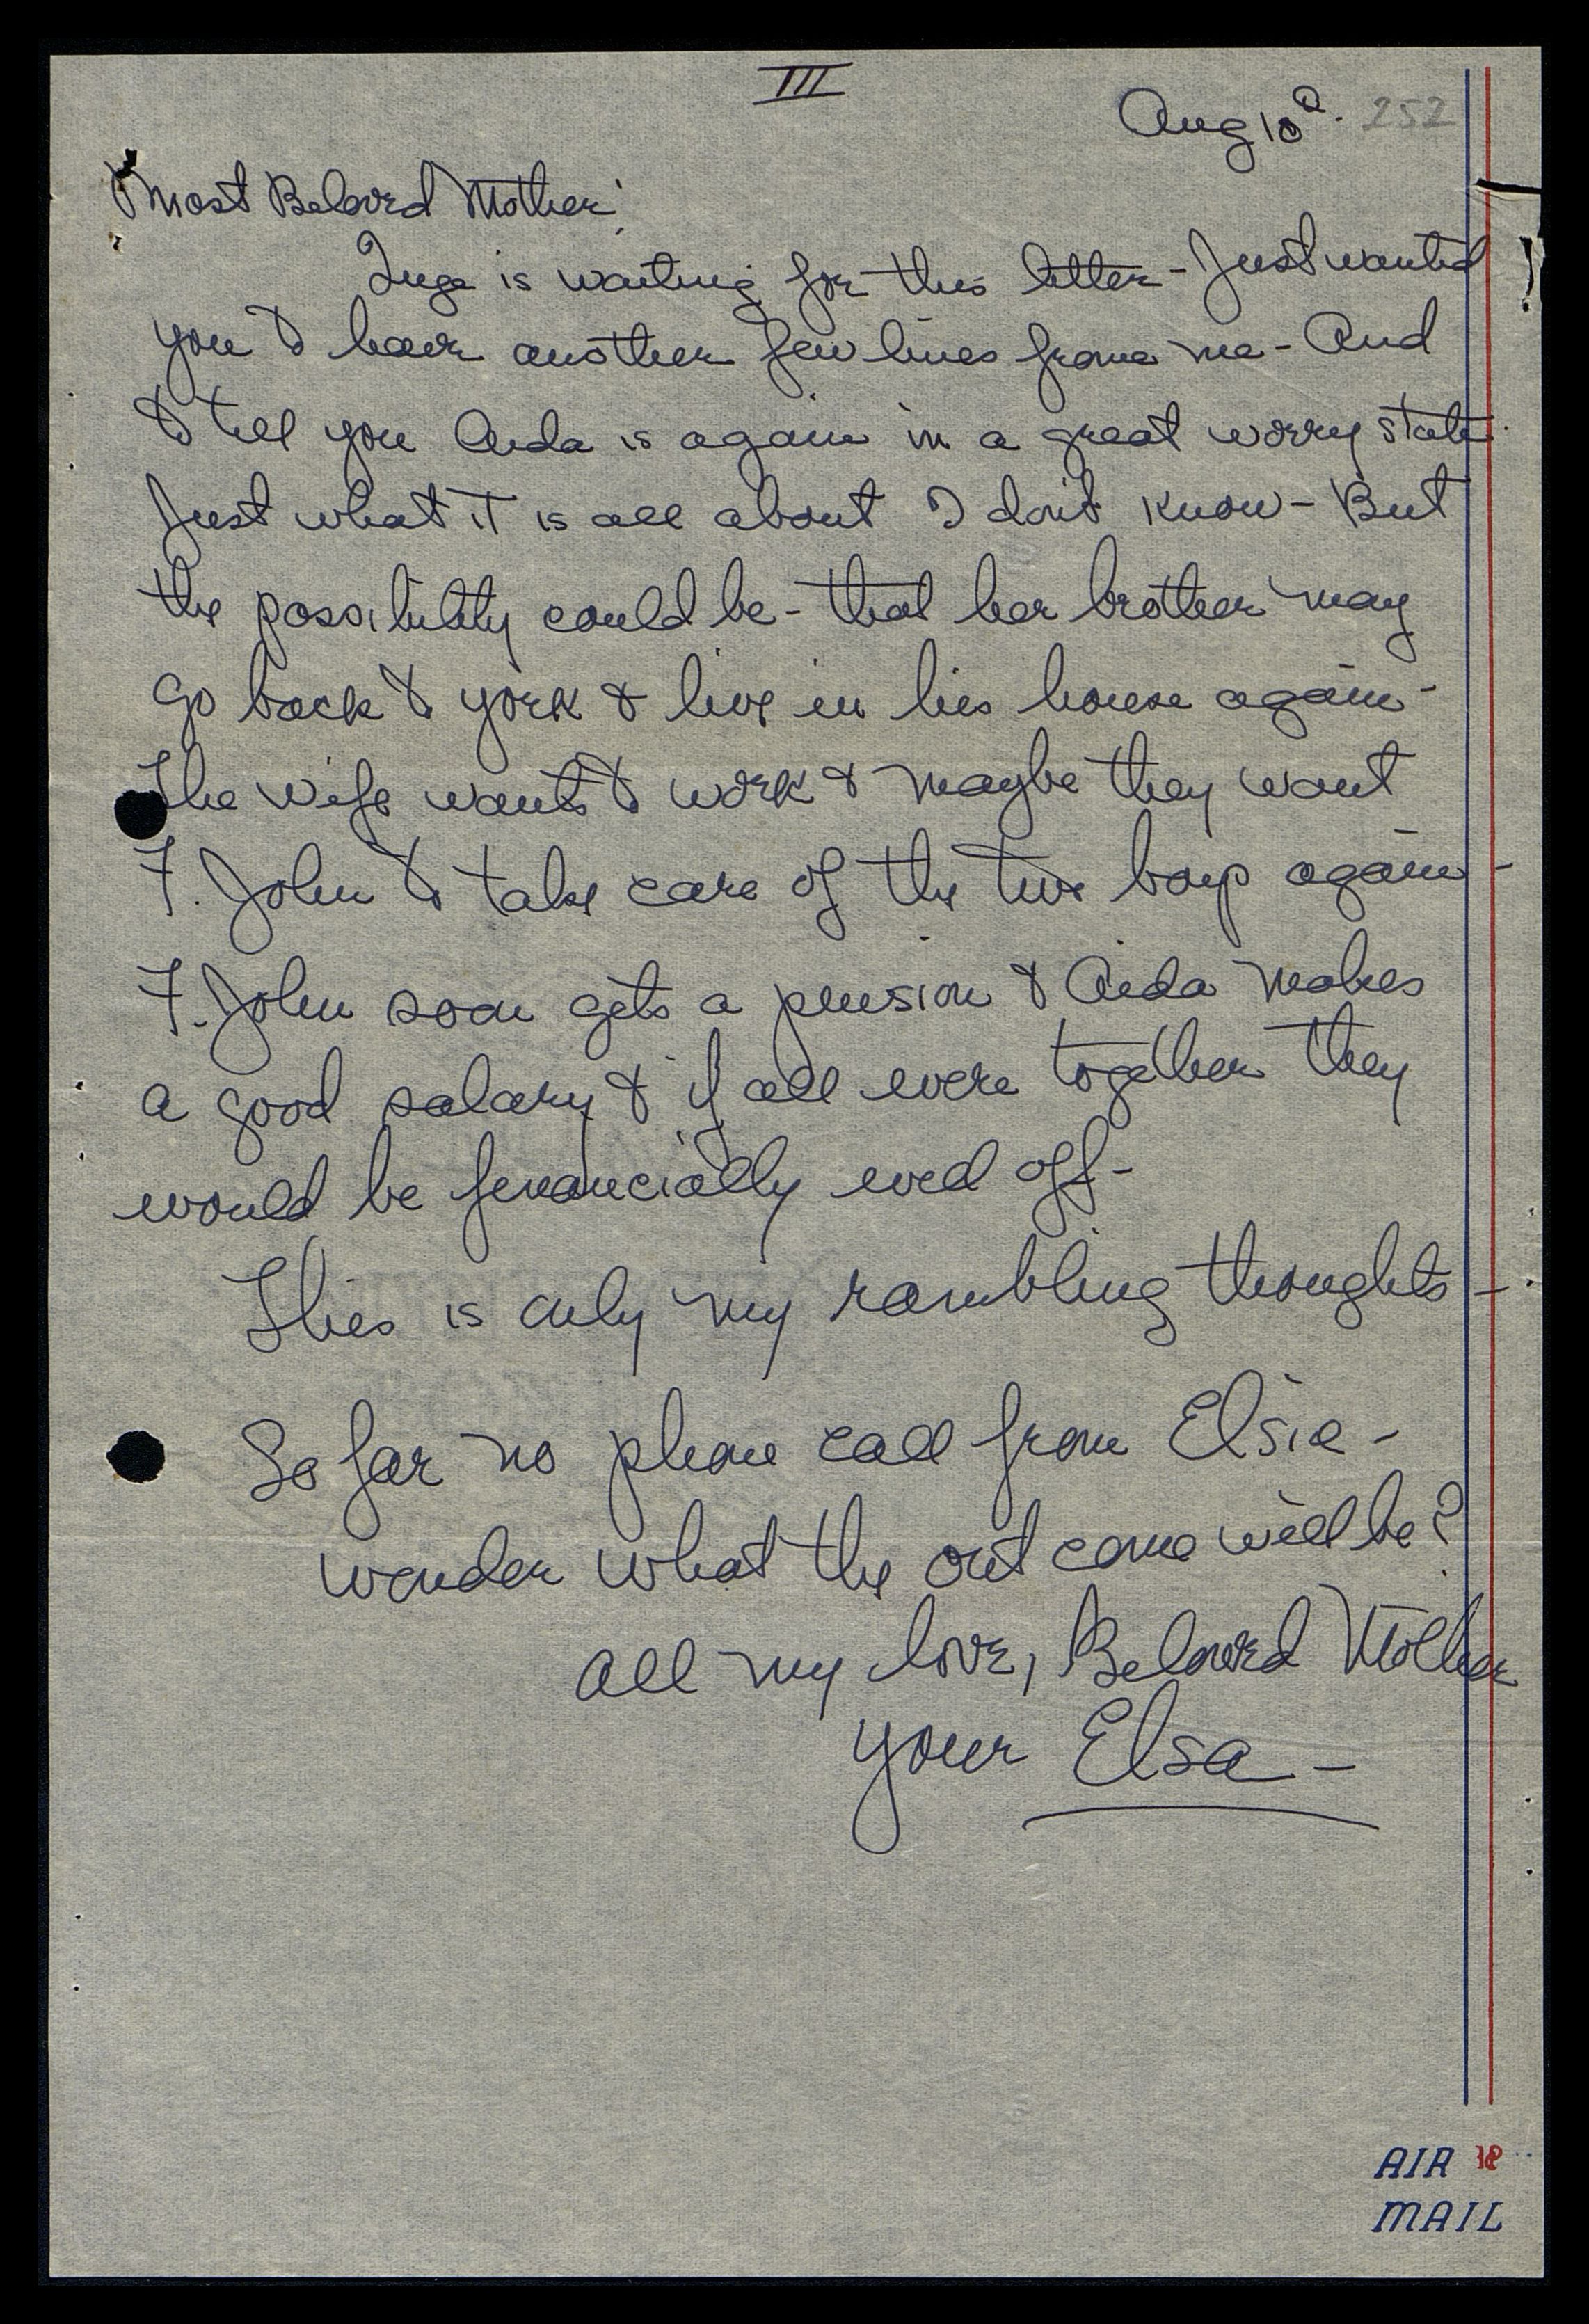 III
Aug 10 a. 252
Most Beloved Mother:
Inge is waiting for this letter - Just wanted
you to have another few lines from me - And
to tell you Aida is again in a great worry state.
Just what it is all about I don't know - But
the possibility could be - that her brother may
go back to york & live in his house again -
The wife wants to work & maybe they want
F. John to take care of the two boys again -
F. John soon gets a pension & Aida makes
a good salary & if all were together they
would be financially well off -
This is only my rambling thoughts -
So far no phone call from Elsie -
wonder what the out come will be?
All my love, Beloved Mother
your Elsa -
AIR
MAIL